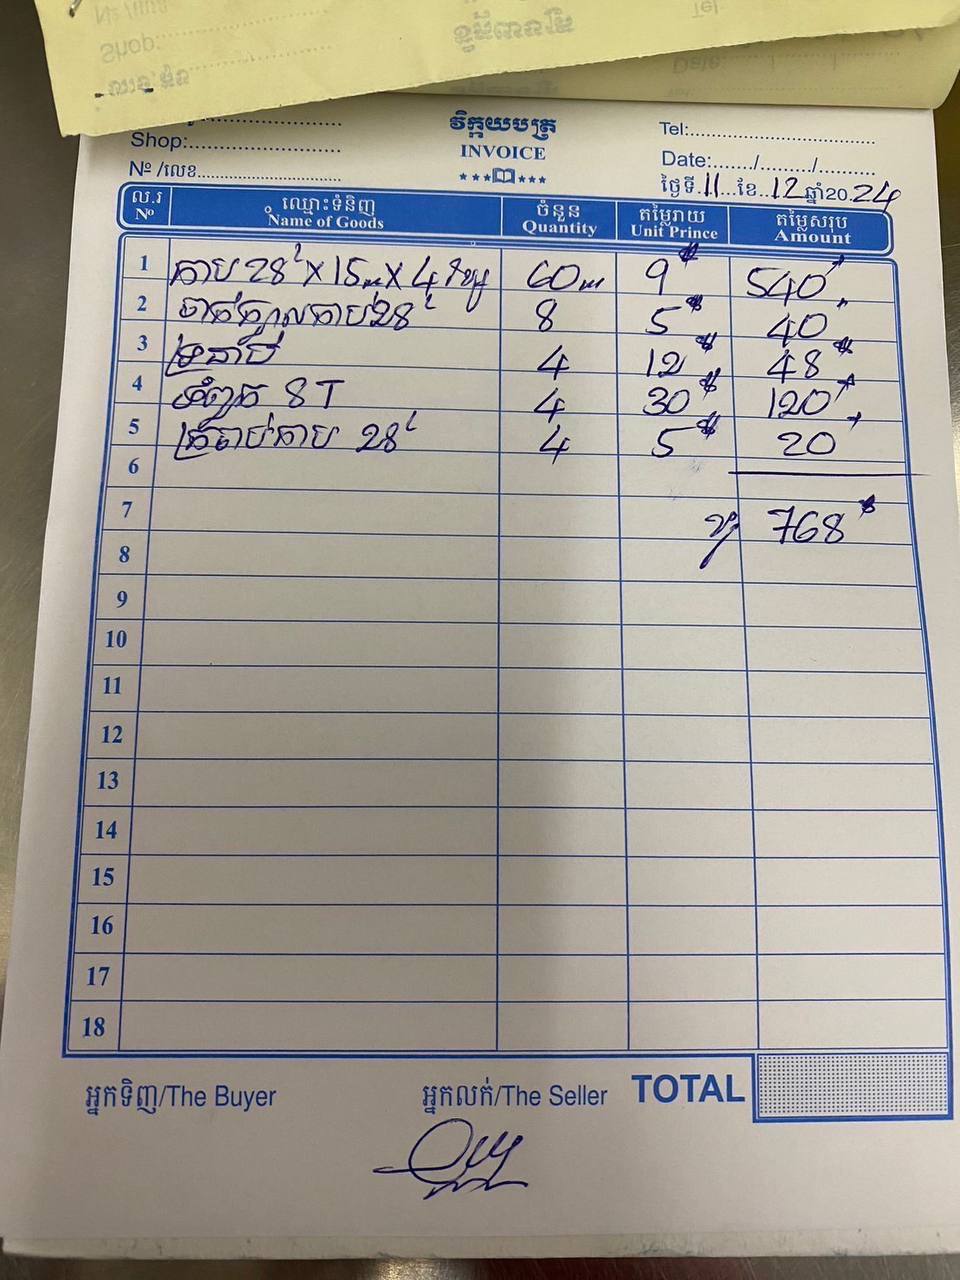 Shop:
វិក្កយបត្រ
INVOICE
Tel:
Nº /លេខ
Date: / /
ថ្ងៃទី 11 ខែ 12 ឆ្នាំ20 24
ល.រ ឈ្មោះទំនិញ ចំនួន តម្លៃរាយ តម្លៃសរុប
Nº Name of Goods Quantity Unit Prince Amount
1 កាប 28 X 15m X 4 60m 9$ 540
2 28 8 5$ 40
3 4 12$ 48$
4 8T 4 30$ 120
5 28 4 5$ 20
6
7 768$
8
9
10
11
12
13
14
15
16
17
18
អ្នកទិញ/The Buyer អ្នកលក់/The Seller TOTAL